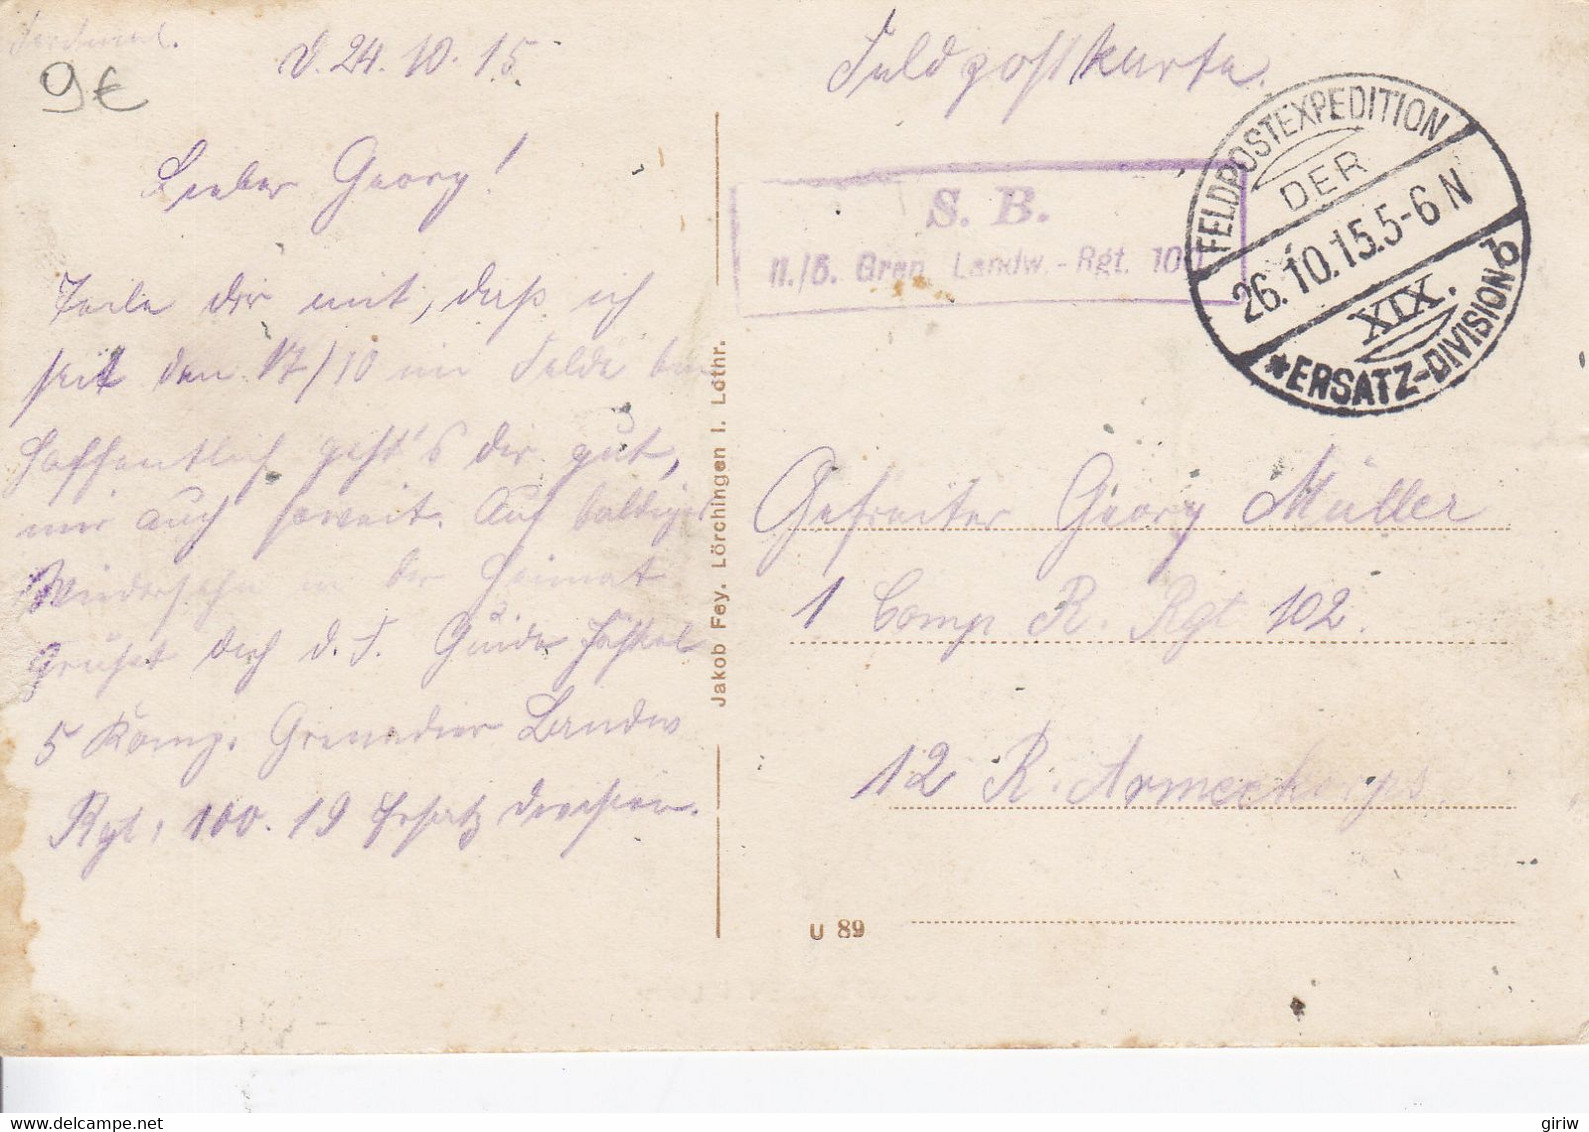 9€
d. 24. 10. 15.
Feldpostkarte.
Lieber Georg!
Teile dir mit, daß ich
seit den 17/10 im Felde bin
Hoffentlich geht's dir gut,
mir auch soweit. Auf baldiges
Wiedersehn in der Heimat
Grüßt dich d. F. Guido
5 Komp. Grenadier Landw
Rgt. 100. 19 Ersatz Division.
Jakob Fey. Lörchingen i. Lothr.
S. B.
II./5. Gren. Landw.-Rgt. 100
FELDPOSTEXPEDITION
DER
26.10.15.5-6 N
XIX.
*ERSATZ-DIVISION b
Gefreiter Georg Müller
1 Comp R. Rgt 102.
12 R. Armeekorps.
U 89
delcampe.net
giriw